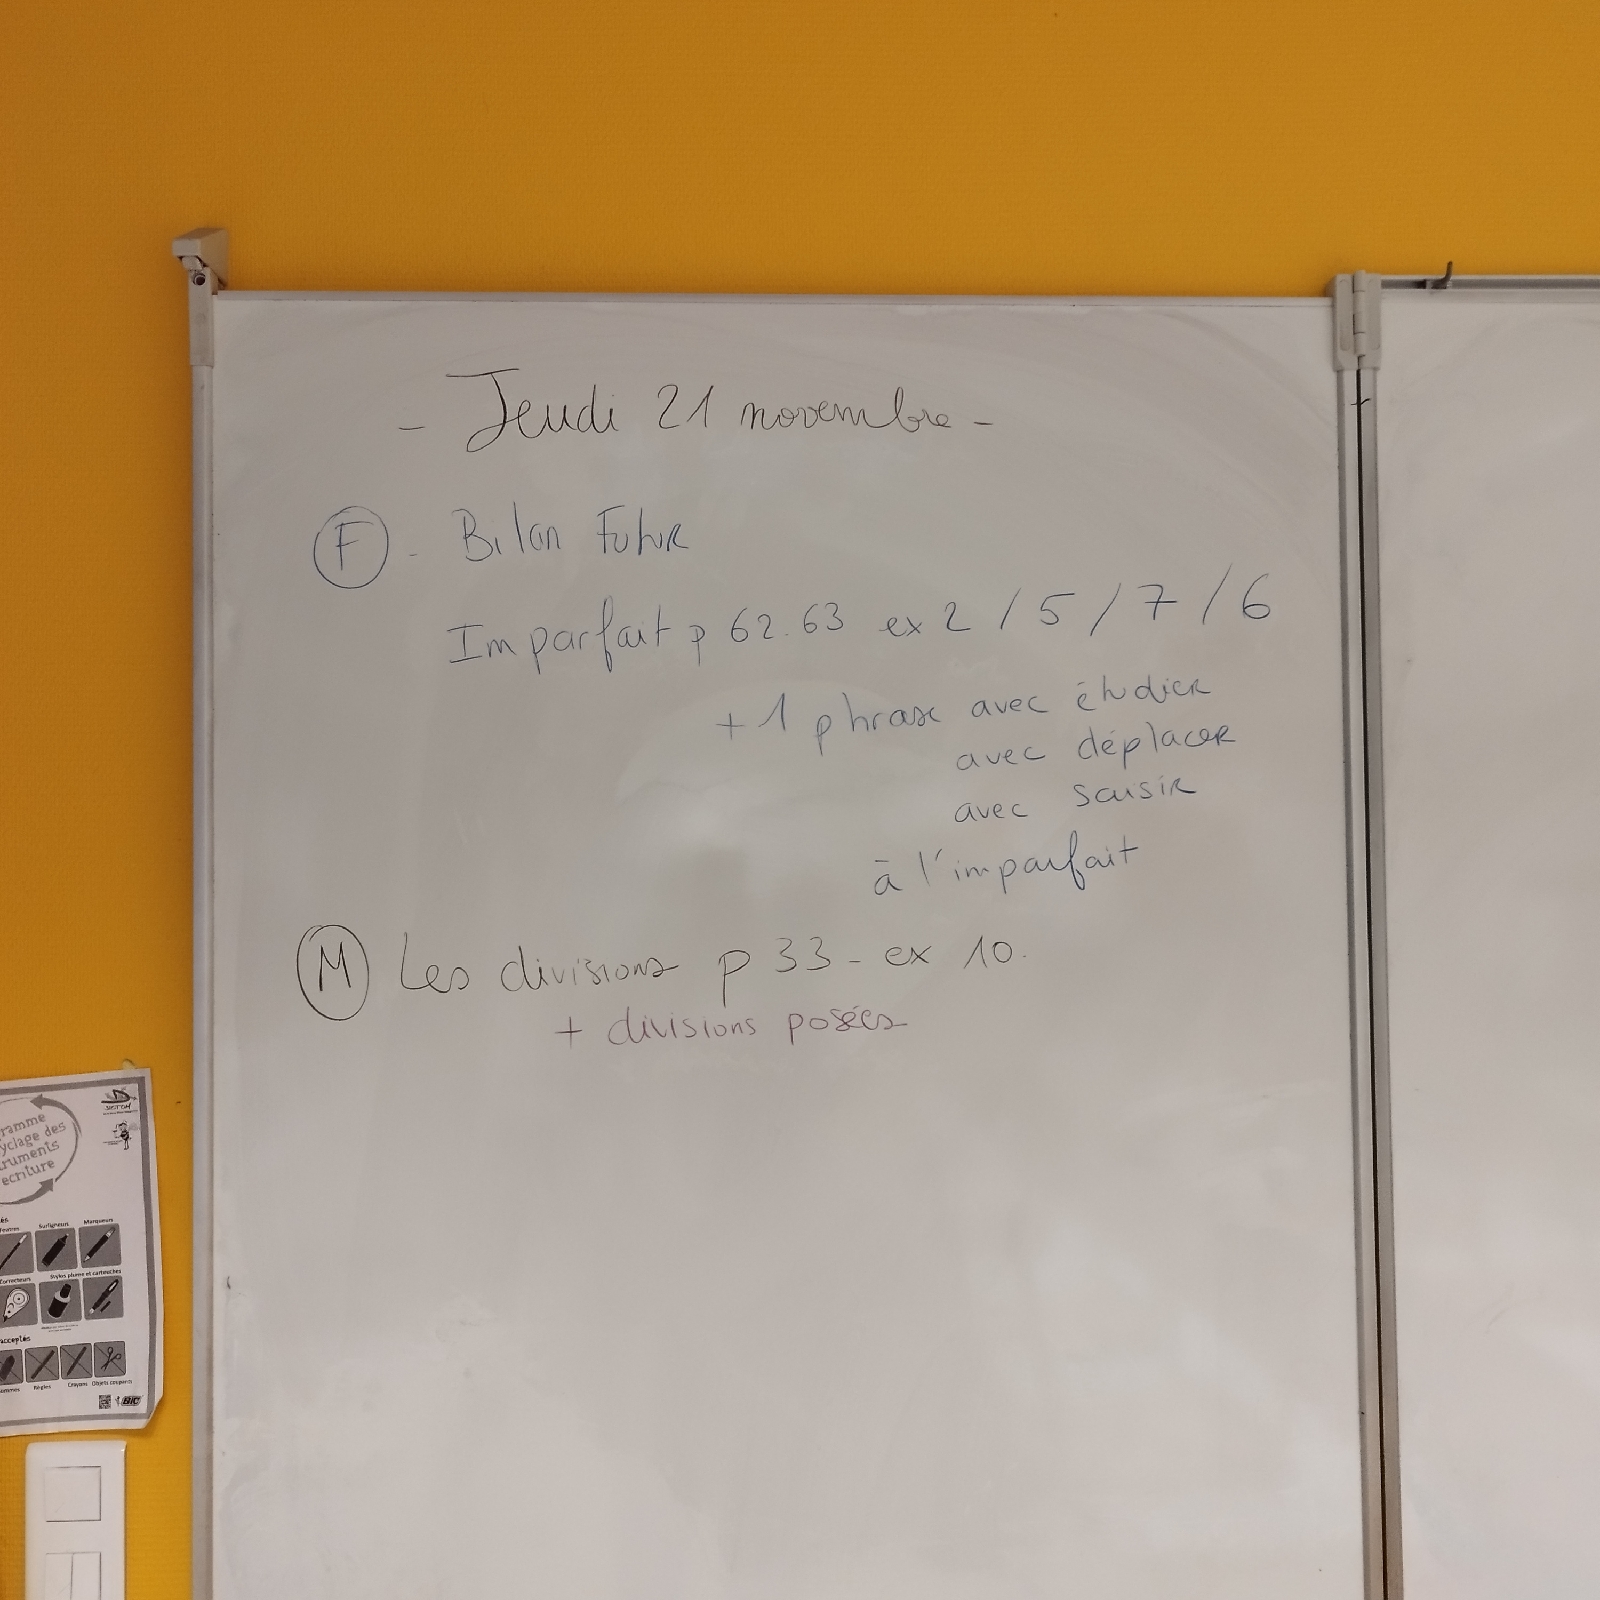 - Jeudi 21 novembre -
F - Bilan Futur
Imparfait p 62.63 ex 2 / 5 / 7 / 6
+ 1 phrase avec étudier
avec déplacer
avec saisir
à l'imparfait
M Les divisions p 33 - ex 10.
+ divisions posées
ramme
yclage des
truments
ecriture
Surligneurs Marqueurs
Correcteurs Stylos plume et cartouches
acceptés
ommes Règles Crayons Objets coupants
BIC